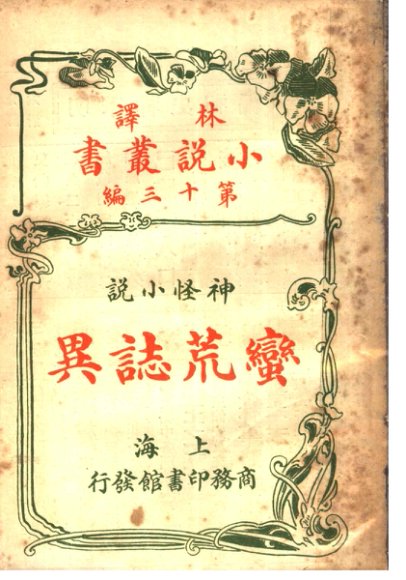 林譯
小說叢書
第十三編
神怪小說
蠻荒誌異
上海
商務印書館發行